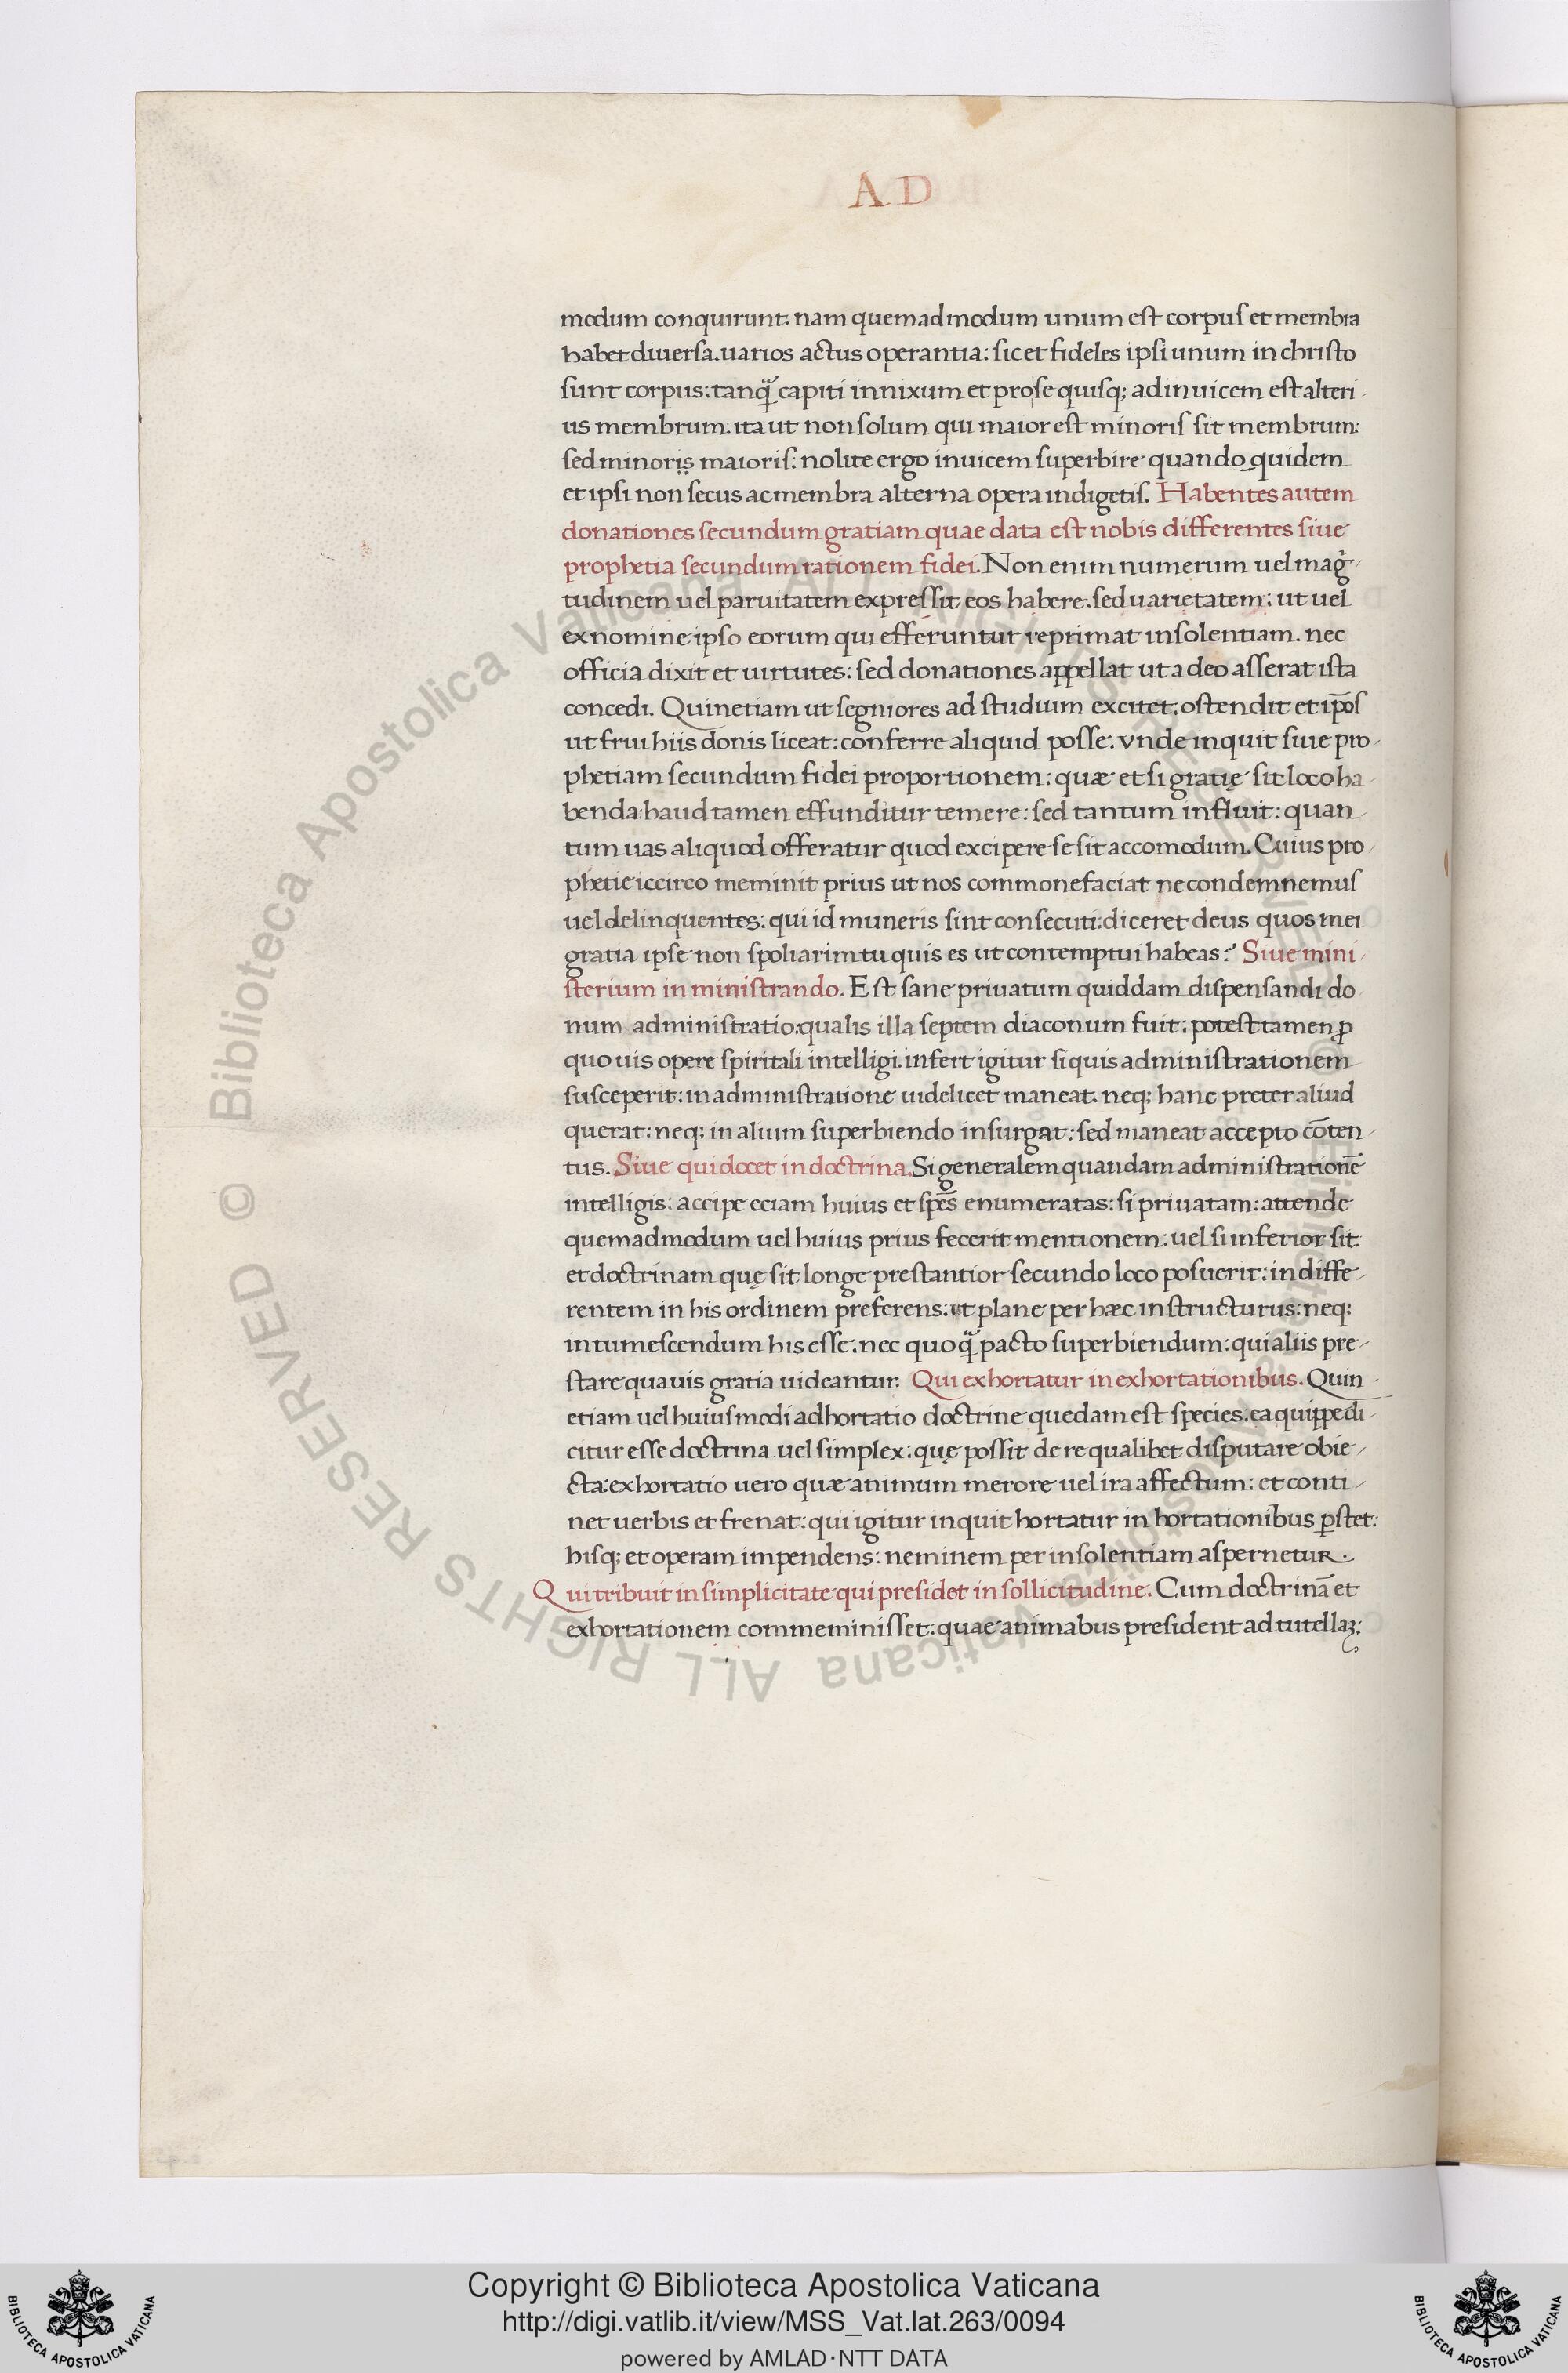 AD
modum conquirunt. nam quemadmodum unum est corpus et membra
habet diuersa. uarios actus operantia: sic et fideles ipsi unum in christo
sunt corpus: tanq̃ capiti innixum et pro se quisq; adinuicem est alteri-
us membrum. ita ut non solum qui maior est minoris sit membrum:
sed minoris maioris: nolite ergo inuicem superbire quando quidem
et ipsi non secus ac membra alterna opera indigetis. Habentes autem
donationes secundum gratiam quae data est nobis differentes siue
prophetia secundum rationem fidei. Non enim numerum uel magi-
tudinem uel paruitatem expressit eos habere. sed uarietatem: ut uel
ex nomine ipso eorum qui efferuntur reprimat insolentiam. nec
officia dixit et uirtutes: sed donationes appellat ut a deo asserat ista
concedi. Quinetiam ut segniores ad studium excitet. ostendit et ip̄os
ut frui hiis donis liceat: conferre aliquid posse. vnde inquit siue pro-
phetiam secundum fidei proportionem: quæ et si gratię sit loco ha-
benda: haud tamen effunditur temere: sed tantum influit: quan-
tum uas aliquod offeratur quod excipere se sit accomodum. Cuius pro-
phetie iccirco meminit prius ut nos commonefaciat ne condemnemus
uel delinquentes: qui id muneris sint consecuti: diceret deus quos mei
gratia ipse non spoliarim tu quis es ut contemptui habeas? Siue mini-
sterium in ministrando. Est sane priuatum quiddam dispensandi do
num administratio: qualis illa septem diaconum fuit: potest tamen ꝓ
quouis opere spiritali intelligi. infert igitur si quis administrationem
susceperit: in administratione uidelicet maneat. neq; hanc preter aliud
querat: neq; in alium superbiendo insurgat: sed maneat accepto cōten-
tus. Siue qui docet in doctrina. Si generalem quandam administrationē
intelligis: accipe eciam huius et sp̄es enumeratas: si priuatam: attende
quemadmodum uel huius prius fecerit mentionem: uel si inferior sit.
et doctrinam quę sit longe prestantior secundo loco posuerit: indiffe-
rentem in his ordinem preferens. et plane per hæc instructurus: neq;
intumescendum his esse: nec quoq̃ pacto superbiendum: qui aliis pre-
stare quauis gratia uideantur. Qui exhortatur in exhortationibus. Quin-
etiam uel huiusmodi adhortatio doctrine quedam est species: ea quippe di-
citur esse doctrina uel simplex: quę possit de re qualibet disputare obie-
cta: exhortatio uero quæ animum merore uel ira affectum: et conti-
net uerbis et frenat: qui igitur inquit hortatur in hortationibus ꝑstet:
hisq; et operam impendens: neminem per insolentiam aspernetur.
Qui tribuit in simplicitate qui presidet in sollicitudine. Cum doctrinā et
exhortationem commeminisset: quae animabus president ad tutellaꝫ:
© Biblioteca Apostolica Vaticana ALL RIGHTS RESERVED
© Biblioteca Apostolica Vaticana ALL RIGHTS RESERVED
Copyright © Biblioteca Apostolica Vaticana
http://digi.vatlib.it/view/MSS_Vat.lat.263/0094
powered by AMLAD·NTT DATA
BIBLIOTECA APOSTOLICA VATICANA
BIBLIOTECA APOSTOLICA VATICANA